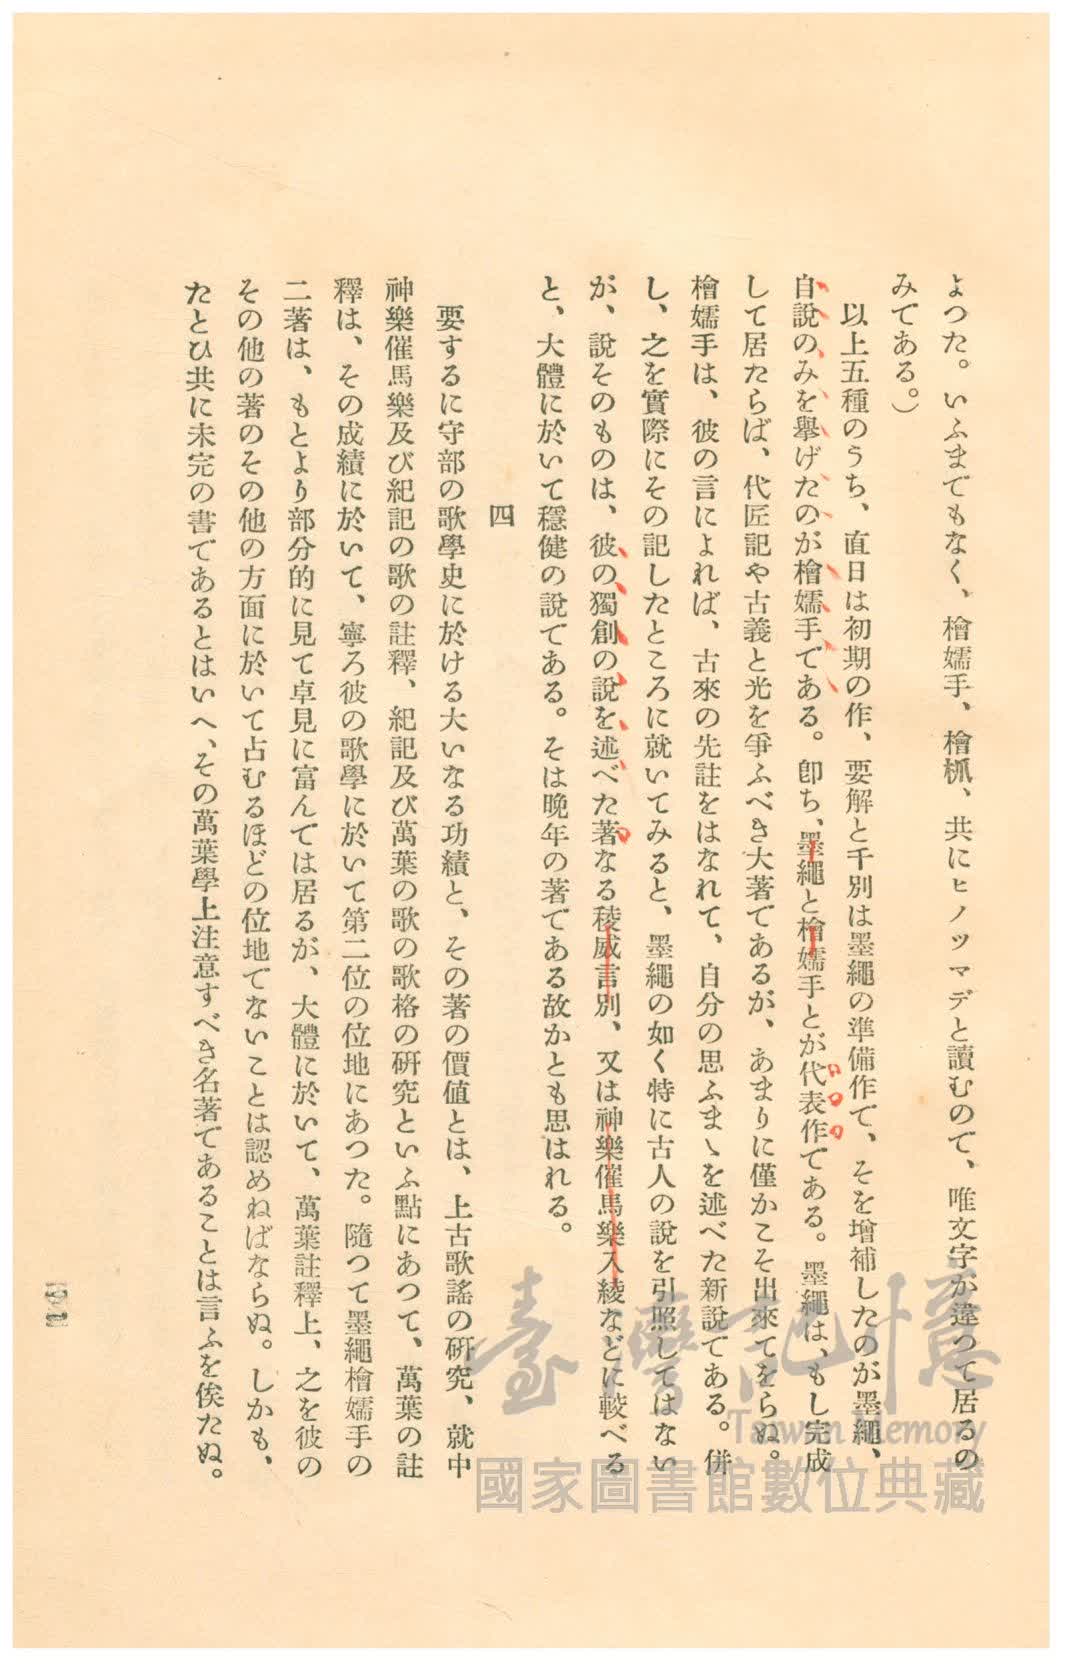 よつた。いふまでもなく、檜嬬手、檜楓、共にヒノツマデと讀むので、唯文字が違つて居るの
みである。）
以上五種のうち、直日は初期の作、要解と千別は墨繩の準備作で、そを增補したのが墨繩、
自說のみを擧げたのが檜嬬手である。卽ち、墨繩と檜嬬手とが代表作である。墨繩は、もし完成
して居たらば、代匠記や古義と光を爭ふべき大著であるが、あまりに僅かこそ出來てをらぬ。
檜嬬手は、彼の言によれば、古來の先註をはなれて、自分の思ふまゝを述べた新說である。併
し、之を實際にその記したところに就いてみると、墨繩の如く特に古人の說を引照してはない
が、說そのものは、彼の獨創の說を述べた著なる稜威言別、又は神樂催馬樂入綾などに較べる
と、大體に於いて穩健の說である。そは晩年の著である故かとも思はれる。
四
要するに守部の歌學史に於ける大いなる功績と、その著の價値とは、上古歌謠の硏究、就中
神樂催馬樂及び紀記の歌の註釋、紀記及び萬葉の歌の歌格の硏究といふ點にあつて、萬葉の註
釋は、その成績に於いて、寧ろ彼の歌學に於いて第二位の位地にあつた。隨つて墨繩檜嬬手の
二著は、もとより部分的に見て卓見に富んでは居るが、大體に於いて、萬葉註釋上、之を彼の
その他の著のその他の方面に於いて占むるほどの位地でないことは認めねばならぬ。しかも、
たとひ共に未完の書であるとはいへ、その萬葉學上注意すべき名著であることは言ふを俟たぬ。
臺灣記憶
Taiwan Memory
國家圖書館數位典藏